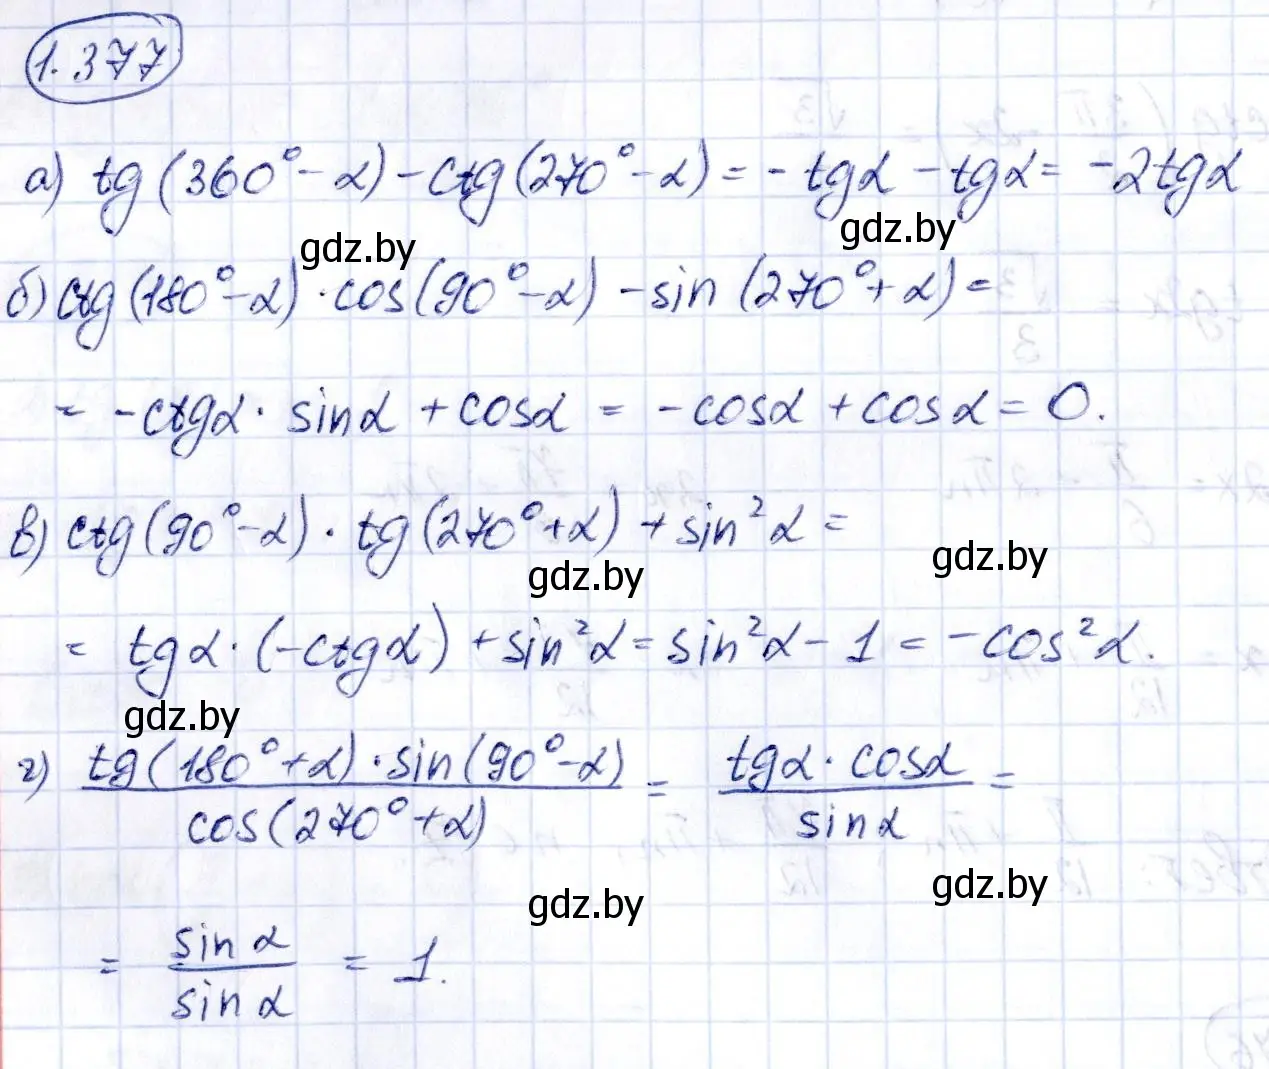 1.377
а) tg(360°-α)-ctg(270°-α)=-tgα-tgα=-2tgα
gdz.by
gdz.by
б) ctg(180°-α)·cos(90°-α)-sin(270°+α)=
= -ctgα· sinα+cosα = -cosα+cosα=0.
в) ctg(90°-α)·tg(270°+α)+sin²α=
gdz.by
gdz.by
= tgα·(-ctgα)+sin²α=sin²α-1=-cos²α.
gdz.by
г) tg(180°+α)·sin(90°-α) = tgα·cosα =
cos(270°+α) sinα
gdz.by
gdz.by
= sinα = 1.
sinα